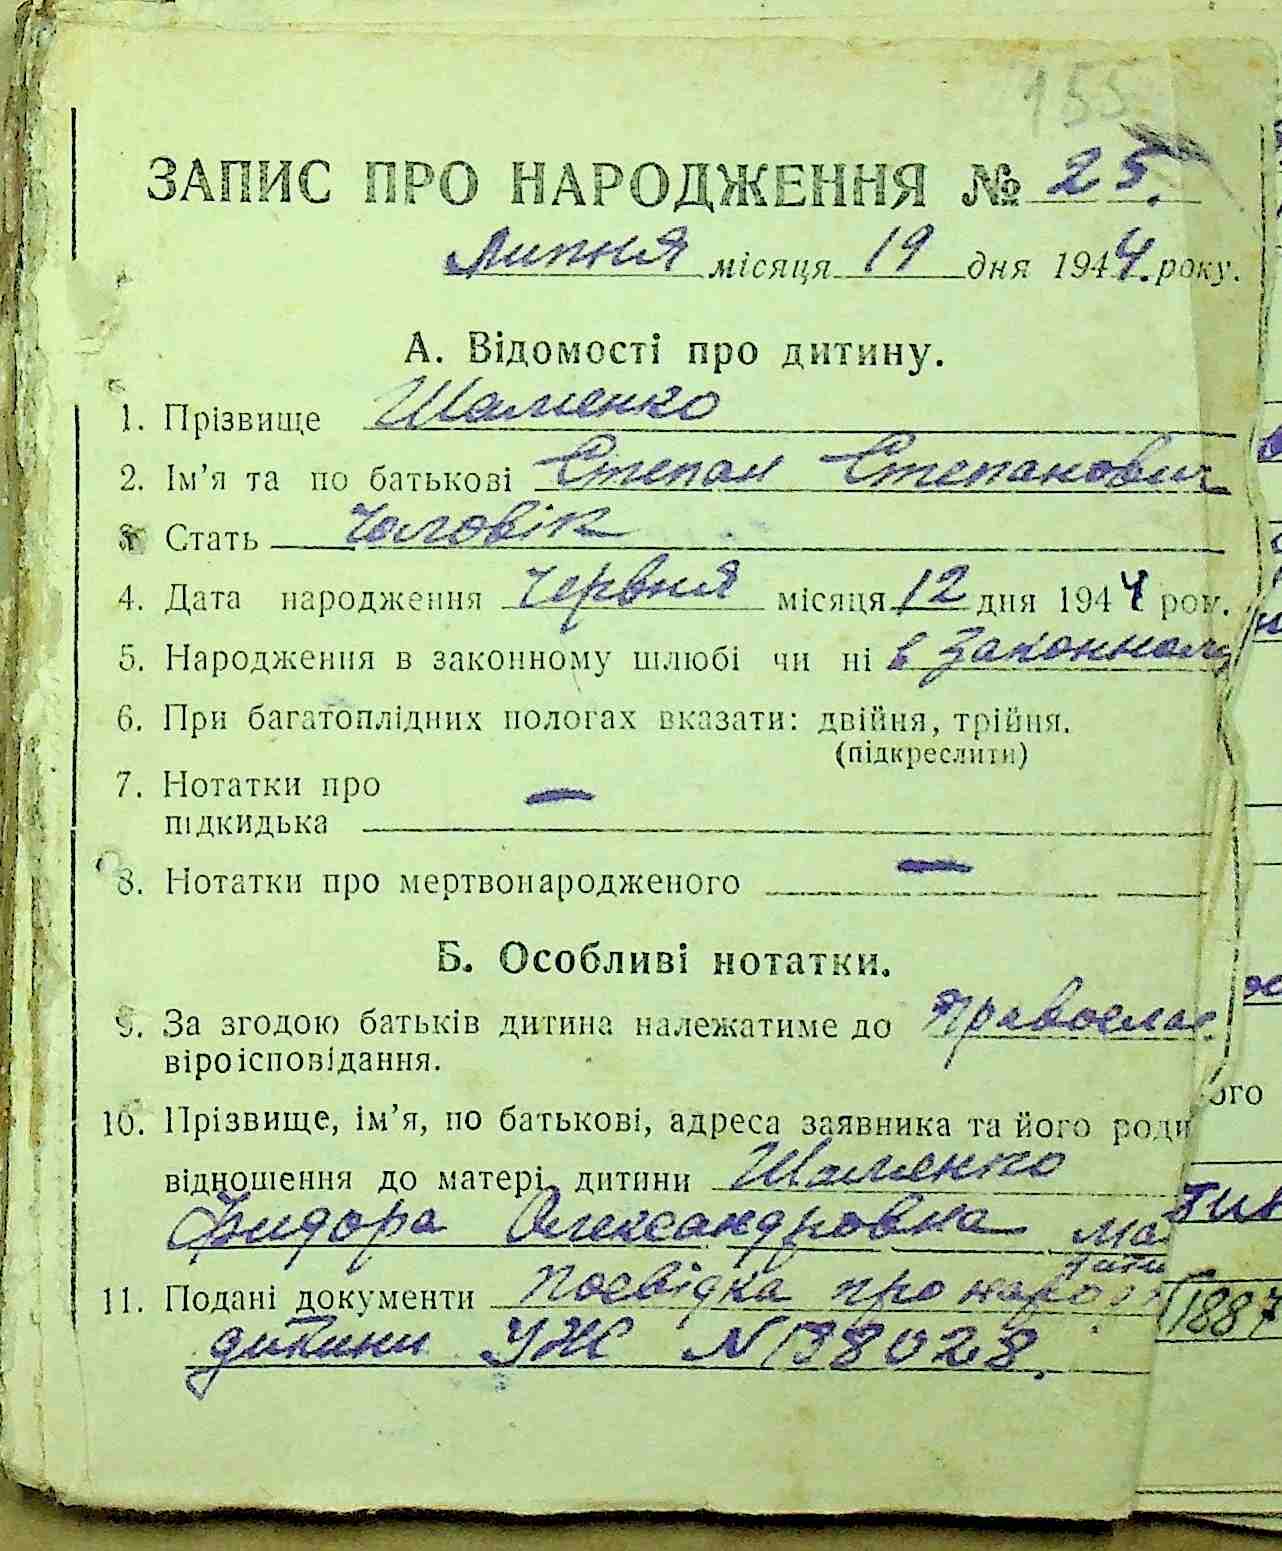 155
ЗАПИС ПРО НАРОДЖЕННЯ № 25.
Липня місяця 19 дня 1944. року.
А. Відомості про дитину.
1. Прізвище Шаменко
2. Ім'я та по батькові Степан Степанович
3. Стать Чоловік
4. Дата народження Червня місяця 12 дня 1944 рок.
5. Народження в законному шлюбі чи ні в законному
6. При багатоплідних пологах вказати: двійня, трійня.
(підкреслити)
7. Нотатки про
підкидька —
8. Нотатки про мертвонародженого —
Б. Особливі нотатки.
9. За згодою батьків дитина належатиме до Православ
віроісповідання.
10. Прізвище, ім'я, по батькові, адреса заявника та його роди
відношення до матері дитини Шаменко
Олександровна ма
11. Подані документи посвідка про народж
дитини УЖ N 198028.
ого
1887